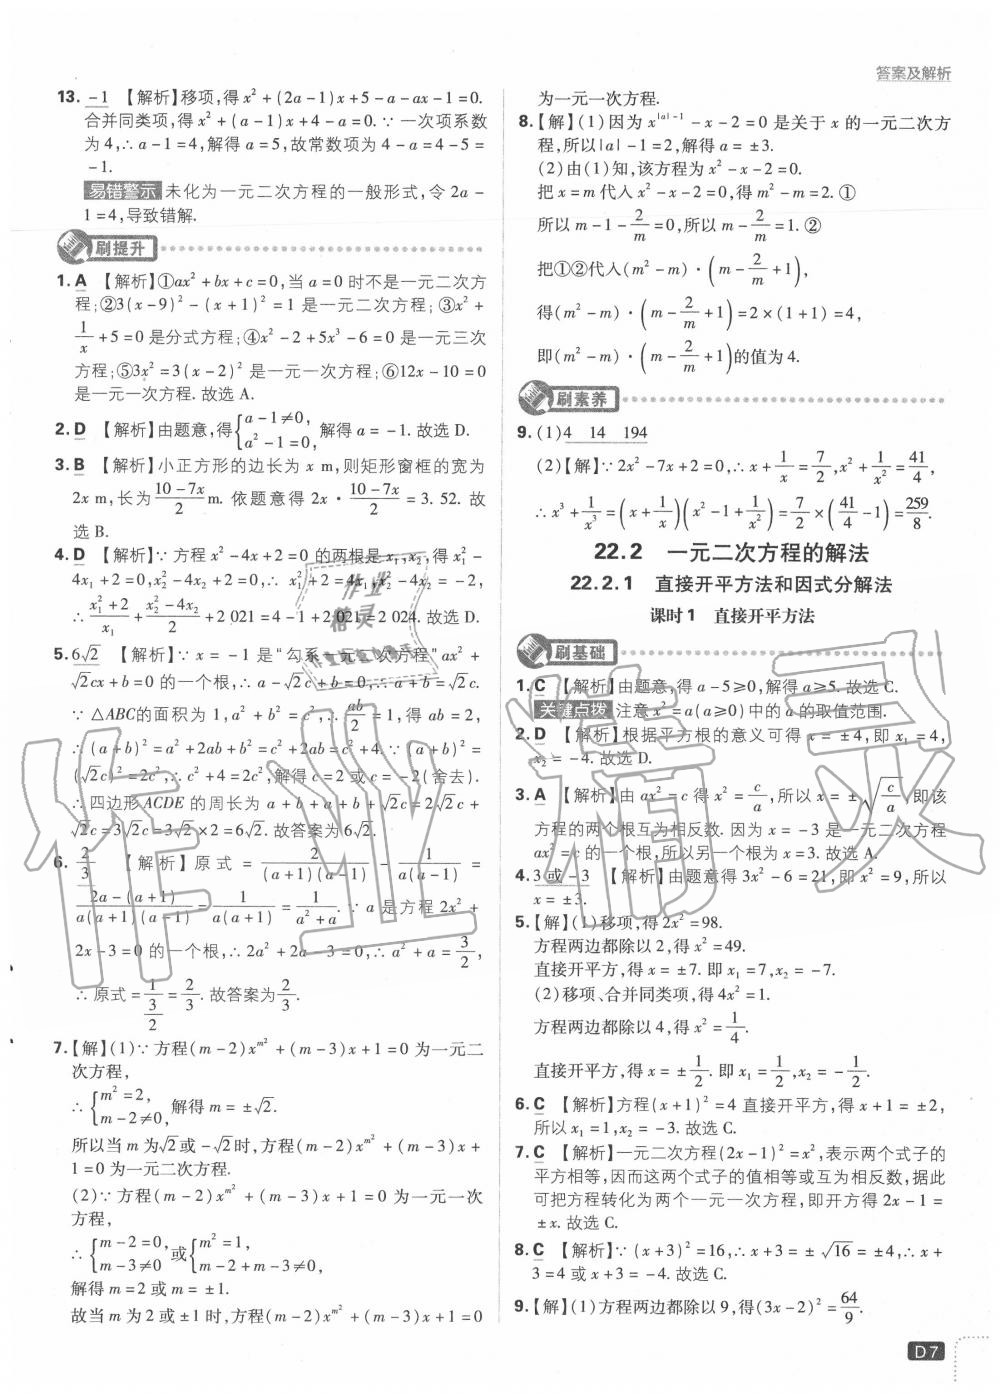 答案及解析
13. -1 【解析】移项,得 x²+(2a-1)x+5-a-ax-1=0.
合并同类项,得 x²+(a-1)x+4-a=0.∵一次项系数
为4,∴a-1=4,解得 a=5,故常数项为 4-a=4-5=
-1.
易错警示 未化为一元二次方程的一般形式,令 2a-
1=4,导致错解.
刷提升
1. A 【解析】①ax²+bx+c=0,当 a=0 时不是一元二次方
程;②3(x-9)²-(x+1)²=1 是一元二次方程;③x²+
1/x+5=0 是分式方程;④x²-2+5x³-6=0 是一元三次
方程;⑤3x²=3(x-2)² 是一元一次方程;⑥12x-10=0
是一元一次方程.故选 A.
2. D 【解析】由题意,得{a-1≠0, a²-1=0, 解得 a=-1.故选 D.
3. B 【解析】小正方形的边长为 x m,则矩形窗框的宽为
2x m,长为(10-7x)/2 m.依题意得 2x·(10-7x)/2=3.52.故
选 B.
4. D 【解析】∵方程 x²-4x+2=0 的两根是 x₁,x₂,得 x₁²-
4x₁+2=0,x₂²-4x₂+2=0,∴x₁²+2=4x₁,x₂²-4x₂=-2,
∴(x₁²+2)/x₁+(x₂²-4x₂)/2+2 021=4-1+2 021=2 024.故选 D.
5. 6√2 【解析】∵x=-1 是“勾系一元二次方程”ax²+
√2cx+b=0 的一个根,∴a-√2c+b=0,∴a+b=√2c.
∵△ABC的面积为 1,a²+b²=c²,∴ab/2=1,得 ab=2,
∴(a+b)²=a²+2ab+b²=c²+2ab=c²+4.∵(a+b)²=
(√2c)²=2c²,∴c²+4=2c²,解得 c=2 或 c=-2(舍去).
∴四边形 ACDE 的周长为 a+b+a+b+√2c=2√2c+
√2c=3√2c=3√2×2=6√2.故答案为6√2.
6. 2/3 【解析】原式=2/((a+1)(a-1))-1/(a(a-1))=
(2a-(a+1))/(a(a+1)(a-1))=1/(a(a+1))=1/(a²+a).∵a 是方程 2x²+
2x-3=0 的一个根,∴2a²+2a-3=0,∴a²+a=3/2,
∴原式=1/(3/2)=2/3.故答案为2/3.
7.【解】(1)∵方程(m-2)x^(m²)+(m-3)x+1=0 为一元二
次方程,
∴{m²=2, m-2≠0, 解得 m=±√2.
所以当 m 为√2或-√2时,方程(m-2)x^(m²)+(m-3)x+
1=0 为一元二次方程.
(2)∵方程(m-2)x^(m²)+(m-3)x+1=0 为一元一次
方程,
∴{m-2=0, m-3≠0 或{m²=1, m-2+m-3≠0,
解得 m=2 或 m=±1.
故当 m 为 2 或±1 时,方程(m-2)x^(m²)+(m-3)x+1=0
为一元一次方程.
8.【解】(1)因为 x^(|a|-1)-x-2=0 是关于 x 的一元二次方
程,所以|a|-1=2,解得 a=±3.
(2)由(1)知,该方程为 x²-x-2=0.
把 x=m 代入 x²-x-2=0,得 m²-m=2.①
所以 m-1-2/m=0,所以 m-2/m=1.②
把①②代入(m²-m)·(m-2/m+1),
得(m²-m)·(m-2/m+1)=2×(1+1)=4,
即(m²-m)·(m-2/m+1)的值为 4.
刷素养
9. (1)4 14 194
(2)【解】∵2x²-7x+2=0,∴x+1/x=7/2,x²+1/x²=41/4,
∴x³+1/x³=(x+1/x)(x²-1+1/x²)=7/2×(41/4-1)=259/8.
22.2 一元二次方程的解法
22.2.1 直接开平方法和因式分解法
课时1 直接开平方法
刷基础
1. C 【解析】由题意,得 a-5≥0,解得 a≥5.故选 C.
关键点拨 注意 x²=a(a≥0)中的 a 的取值范围.
2. D 【解析】根据平方根的意义可得 x=±4,即 x₁=4,
x₂=-4.故选 D.
3. A 【解析】由 ax²=c 得 x²=c/a,所以 x=±√(c/a),即该
方程的两个根互为相反数.因为 x=-3 是一元二次方程
ax²=c 的一个根,所以另一个根为 x=3.故选 A.
4. 3 或-3 【解析】由题意得 3x²-6=21,即 x²=9,所以
x=±3.
5.【解】(1)移项,得 2x²=98.
方程两边都除以 2,得 x²=49.
直接开平方,得 x=±7.即 x₁=7,x₂=-7.
(2)移项、合并同类项,得 4x²=1.
方程两边都除以 4,得 x²=1/4.
直接开平方,得 x=±1/2.即 x₁=1/2,x₂=-1/2.
6. C 【解析】方程(x+1)²=4 直接开平方,得 x+1=±2,
所以 x₁=1,x₂=-3.故选 C.
7. C 【解析】一元二次方程(2x-1)²=x²,表示两个式子的
平方相等,因而这两个式子的值相等或互为相反数,据此
可把方程转化为两个一元一次方程,即开方得 2x-1=
±x.故选 C.
8. C 【解析】∵(x+3)²=16,∴x+3=±√16=±4,∴x+
3=4 或 x+3=-4.故选 C.
9.【解】(1)方程两边都除以 9,得(3x-2)²=64/9.
D7
作业精灵
作业精灵